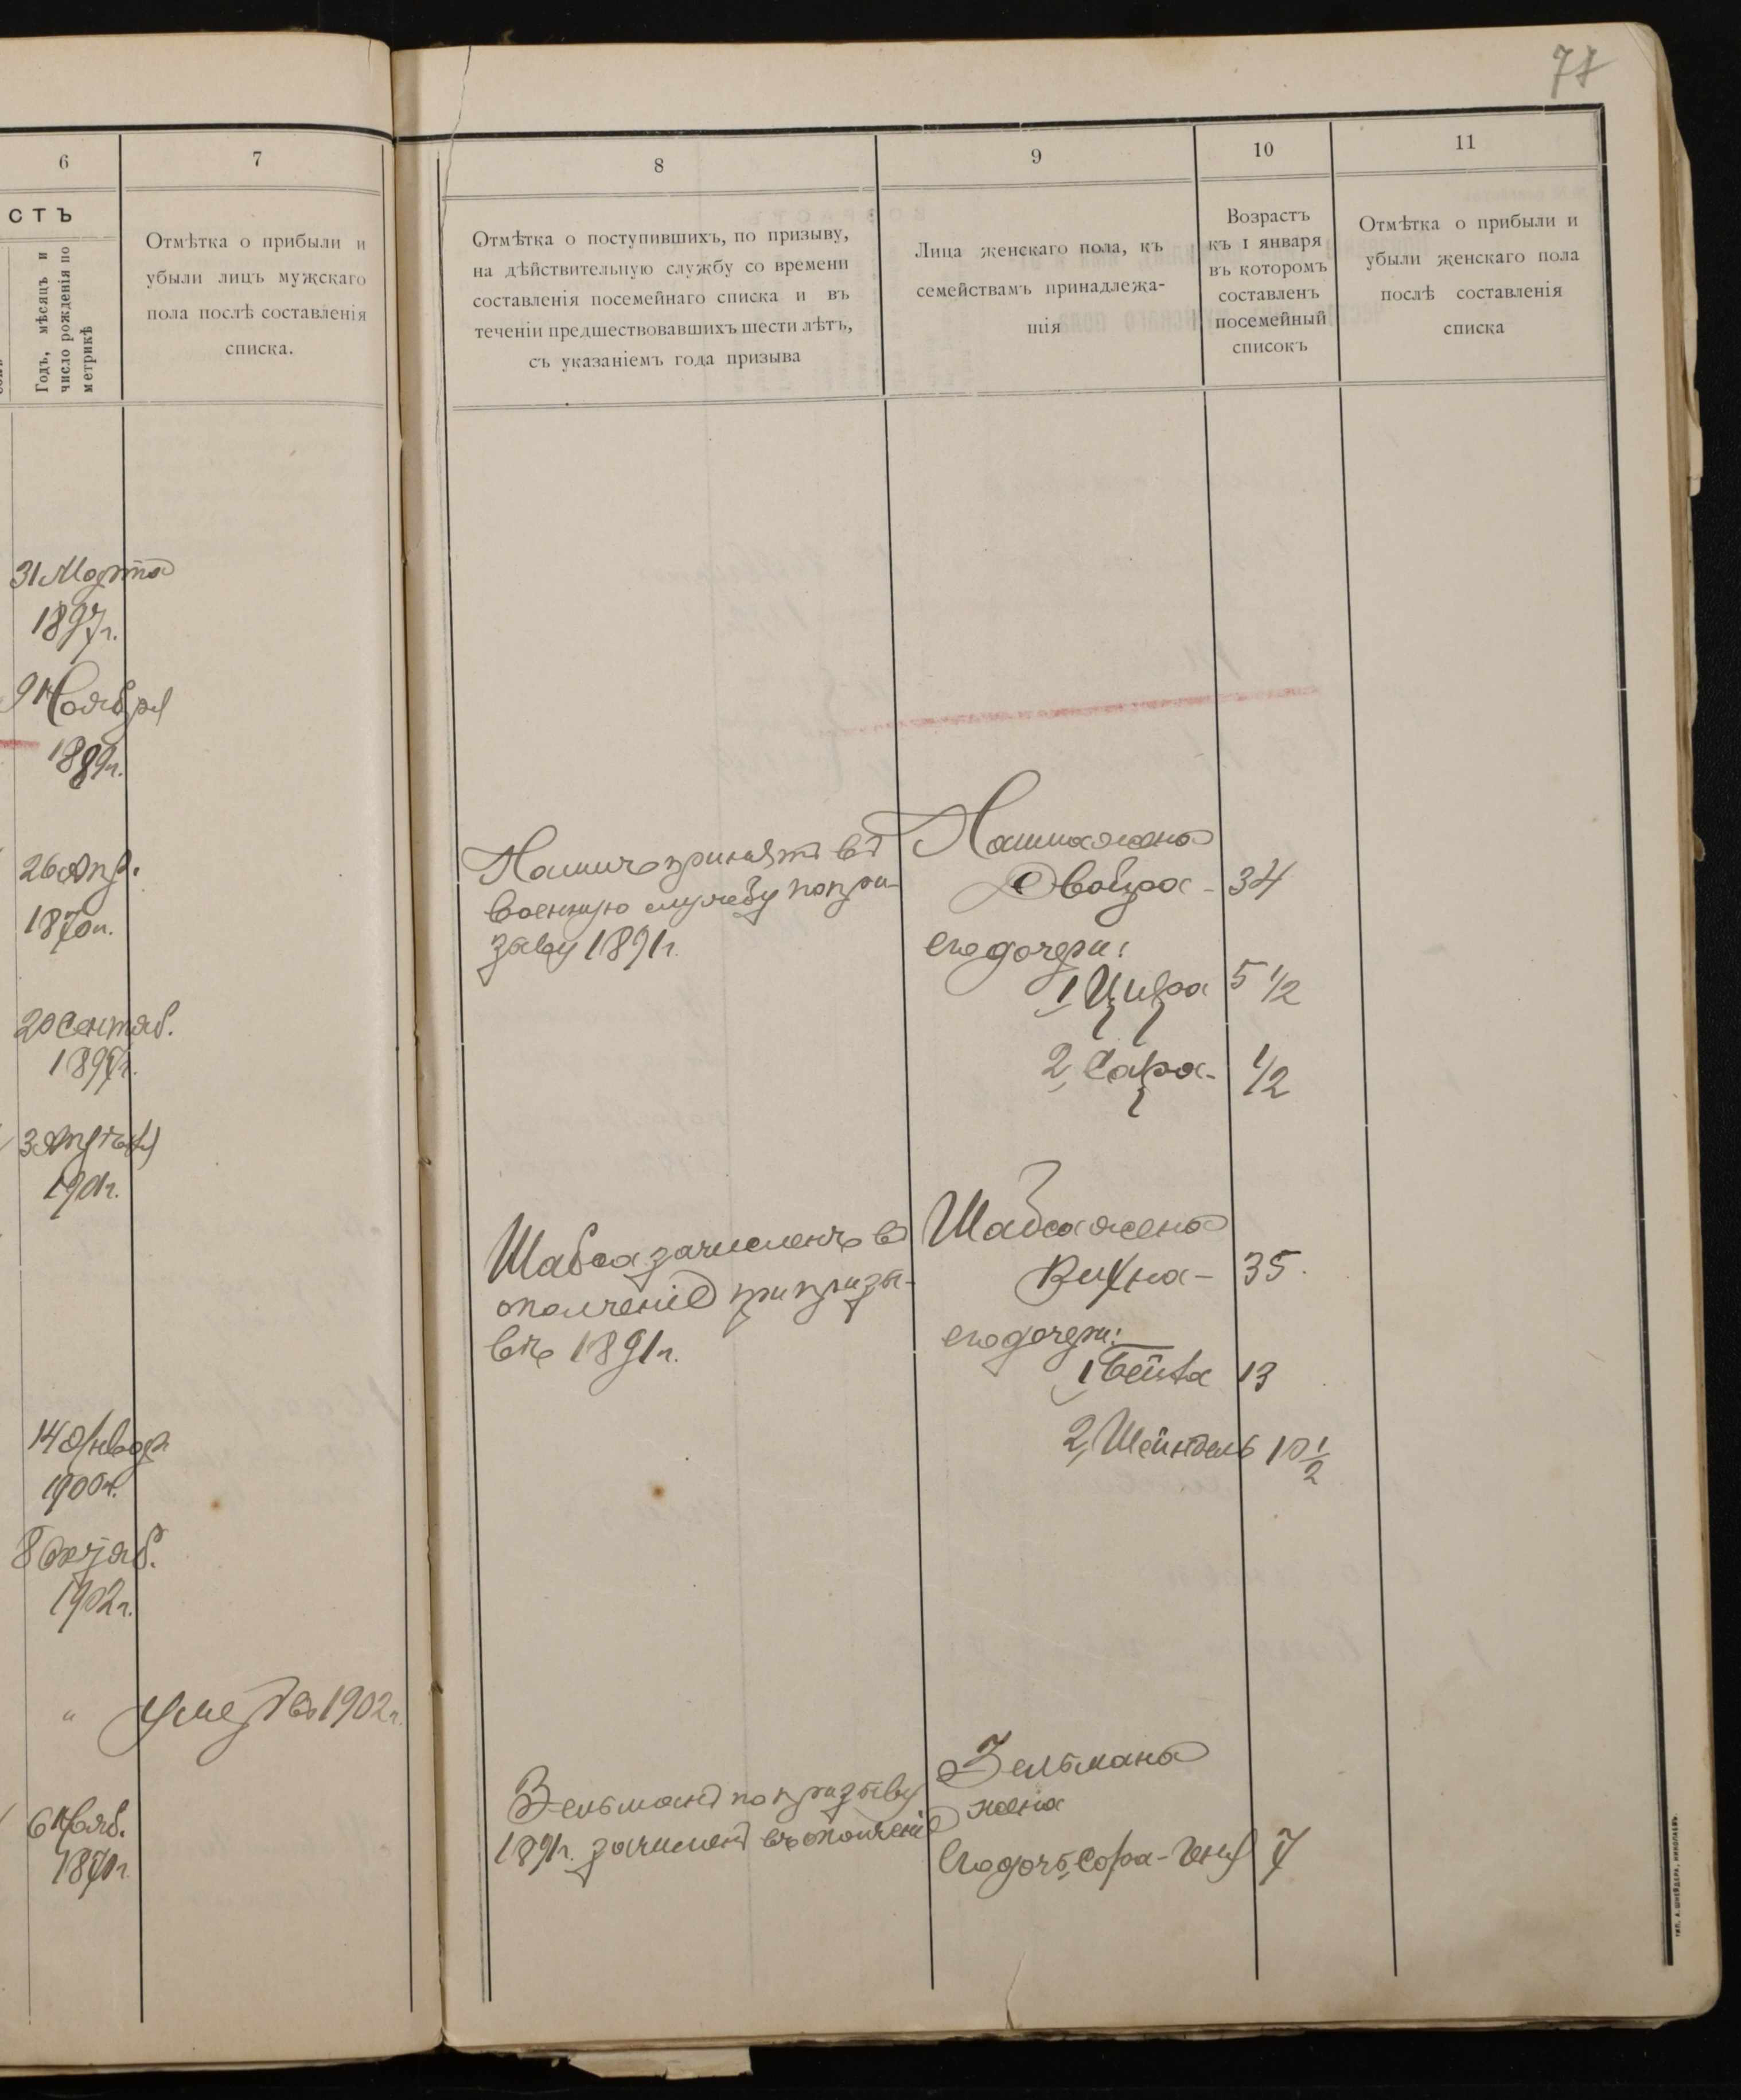 77
6
7
8
9
10
11
СТЪ
Годъ, мѣсяцъ и
число рожденія по
метрикѣ
Отмѣтка о прибыли и
убыли лицъ мужскаго
пола послѣ составленія
списка.
Отмѣтка о поступившихъ, по призыву,
на дѣйствительную службу со времени
составленія посемейнаго списка и въ
теченіи предшествовавшихъ шести лѣтъ,
съ указаніемъ года призыва
Лица женскаго пола, къ
семействамъ принадлежа-
щія
Возрастъ
къ 1 января
въ которомъ
составленъ
посемейный
списокъ
Отмѣтка о прибыли и
убыли женскаго пола
послѣ составленія
списка
31 Марта
1897г.
9 Ноября
1889г.
26 Апр.
1870г.
20 Сентяб.
189 г.
3
1901г.
14 Январ
1900г.
8 Октяб.
1902г.
" умер въ 1902г.
6 Нояб.
187 г.
принятъ въ
военную службу по при-
зыву 1891г.
Шабса зачисленъ въ
ополченіе при призы-
вѣ 1891г.
Зельманъ по призыву
1891г. зачисленъ въ ополченіе
жена
Двойра - 34
его дочери:
1, Цира 5 1/2
2, Сара - 1/2
Шабса жена
Рихна - 35.
его дочери:
1, Бейла 13
2, Шейндель 10 1/2
Зельмана
жена
Его дочь, Сора- 7
ТИП. А. ШНЕЙДЕРА, НИКОЛАЕВЪ.